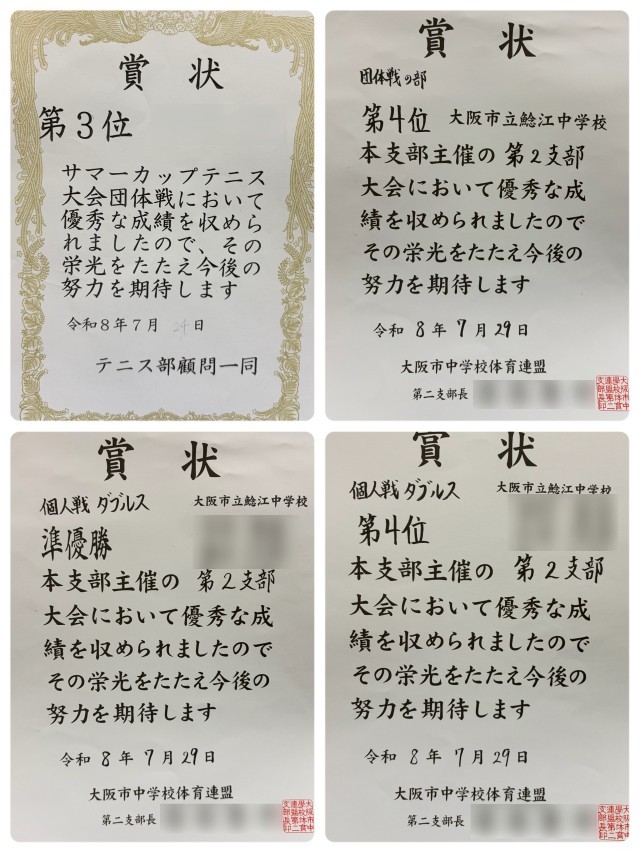 賞 状
第3位
サマーカップテニス
大会団体戦において
優秀な成績を収めら
れましたので、その
栄光をたたえ今後の
努力を期待します
令和8年7月 日
テニス部顧問一同
賞 状
団体戦の部
第4位 大阪市立鯰江中学校
本支部主催の 第2支部
大会において優秀な成
績を収められましたので
その栄光をたたえ今後の
努力を期待します
令和 8年 7月 29日
大阪市中学校体育連盟
第二支部長
賞 状
個人戦 ダブルス 大阪市立鯰江中学校
準優勝
本支部主催の 第2支部
大会において優秀な成
績を収められましたので
その栄光をたたえ今後の
努力を期待します
令和 8年 7月 29日
大阪市中学校体育連盟
第二支部長
賞 状
個人戦 ダブルス 大阪市立鯰江中学校
第4位
本支部主催の 第2支部
大会において優秀な成
績を収められましたので
その栄光をたたえ今後の
努力を期待します
令和 8年 7月 29日
大阪市中学校体育連盟
第二支部長